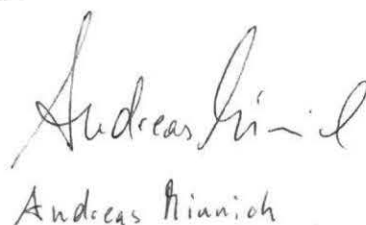 Andreas Minnich
Andreas Minnich